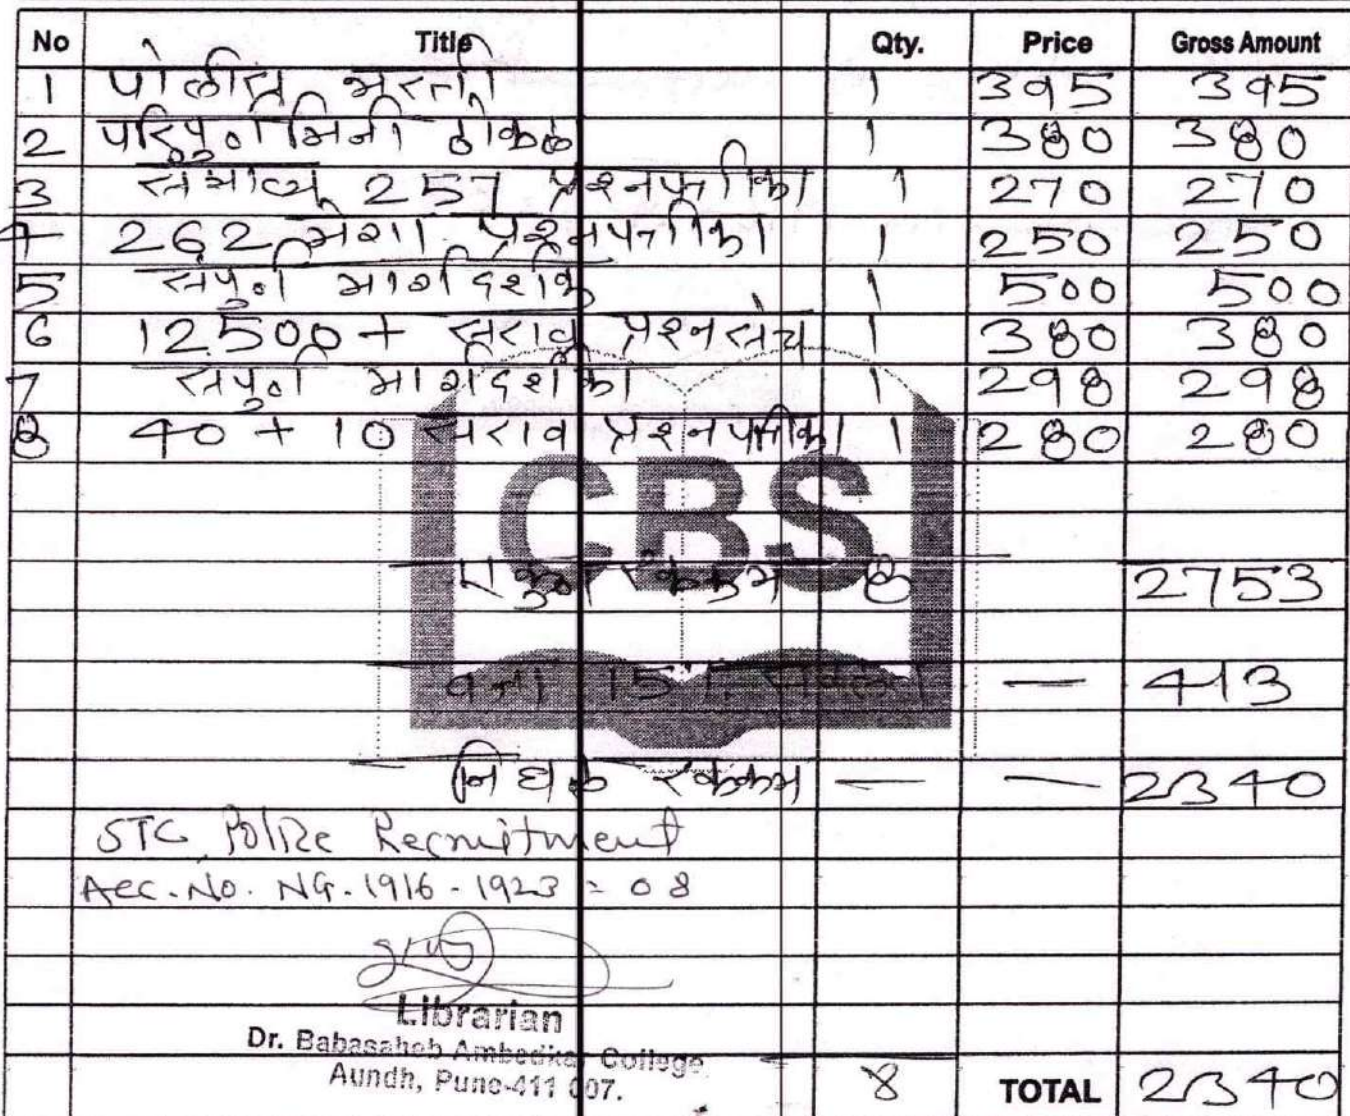 No Title Qty. Price Gross Amount
1 पोलीस भरती 1 395 395
2 परिपुर्ण मिनी ठोकळा 1 380 380
3 संभाव्य 257 प्रश्नपत्रीका 1 270 270
4 262 प्रश्नपत्रीका 1 250 250
5 संपुर्ण मार्गदर्शक 1 500 500
6 12500 + सराव प्रश्नसंच 1 380 380
7 संपुर्ण मार्गदर्शिका 1 298 298
8 40 + 10 सराव प्रश्नपत्रीका 1 280 280
CBS
एकुण रक्कम 8 2753
वजा 15 % सवलत — 413
रक्कम — — 2340
STC Police Recruitment
Acc. No. NG. 1916 - 1923 = 08
Librarian
Dr. Babasaheb Ambedkar College
Aundh, Pune-411 007.
8 TOTAL 2340